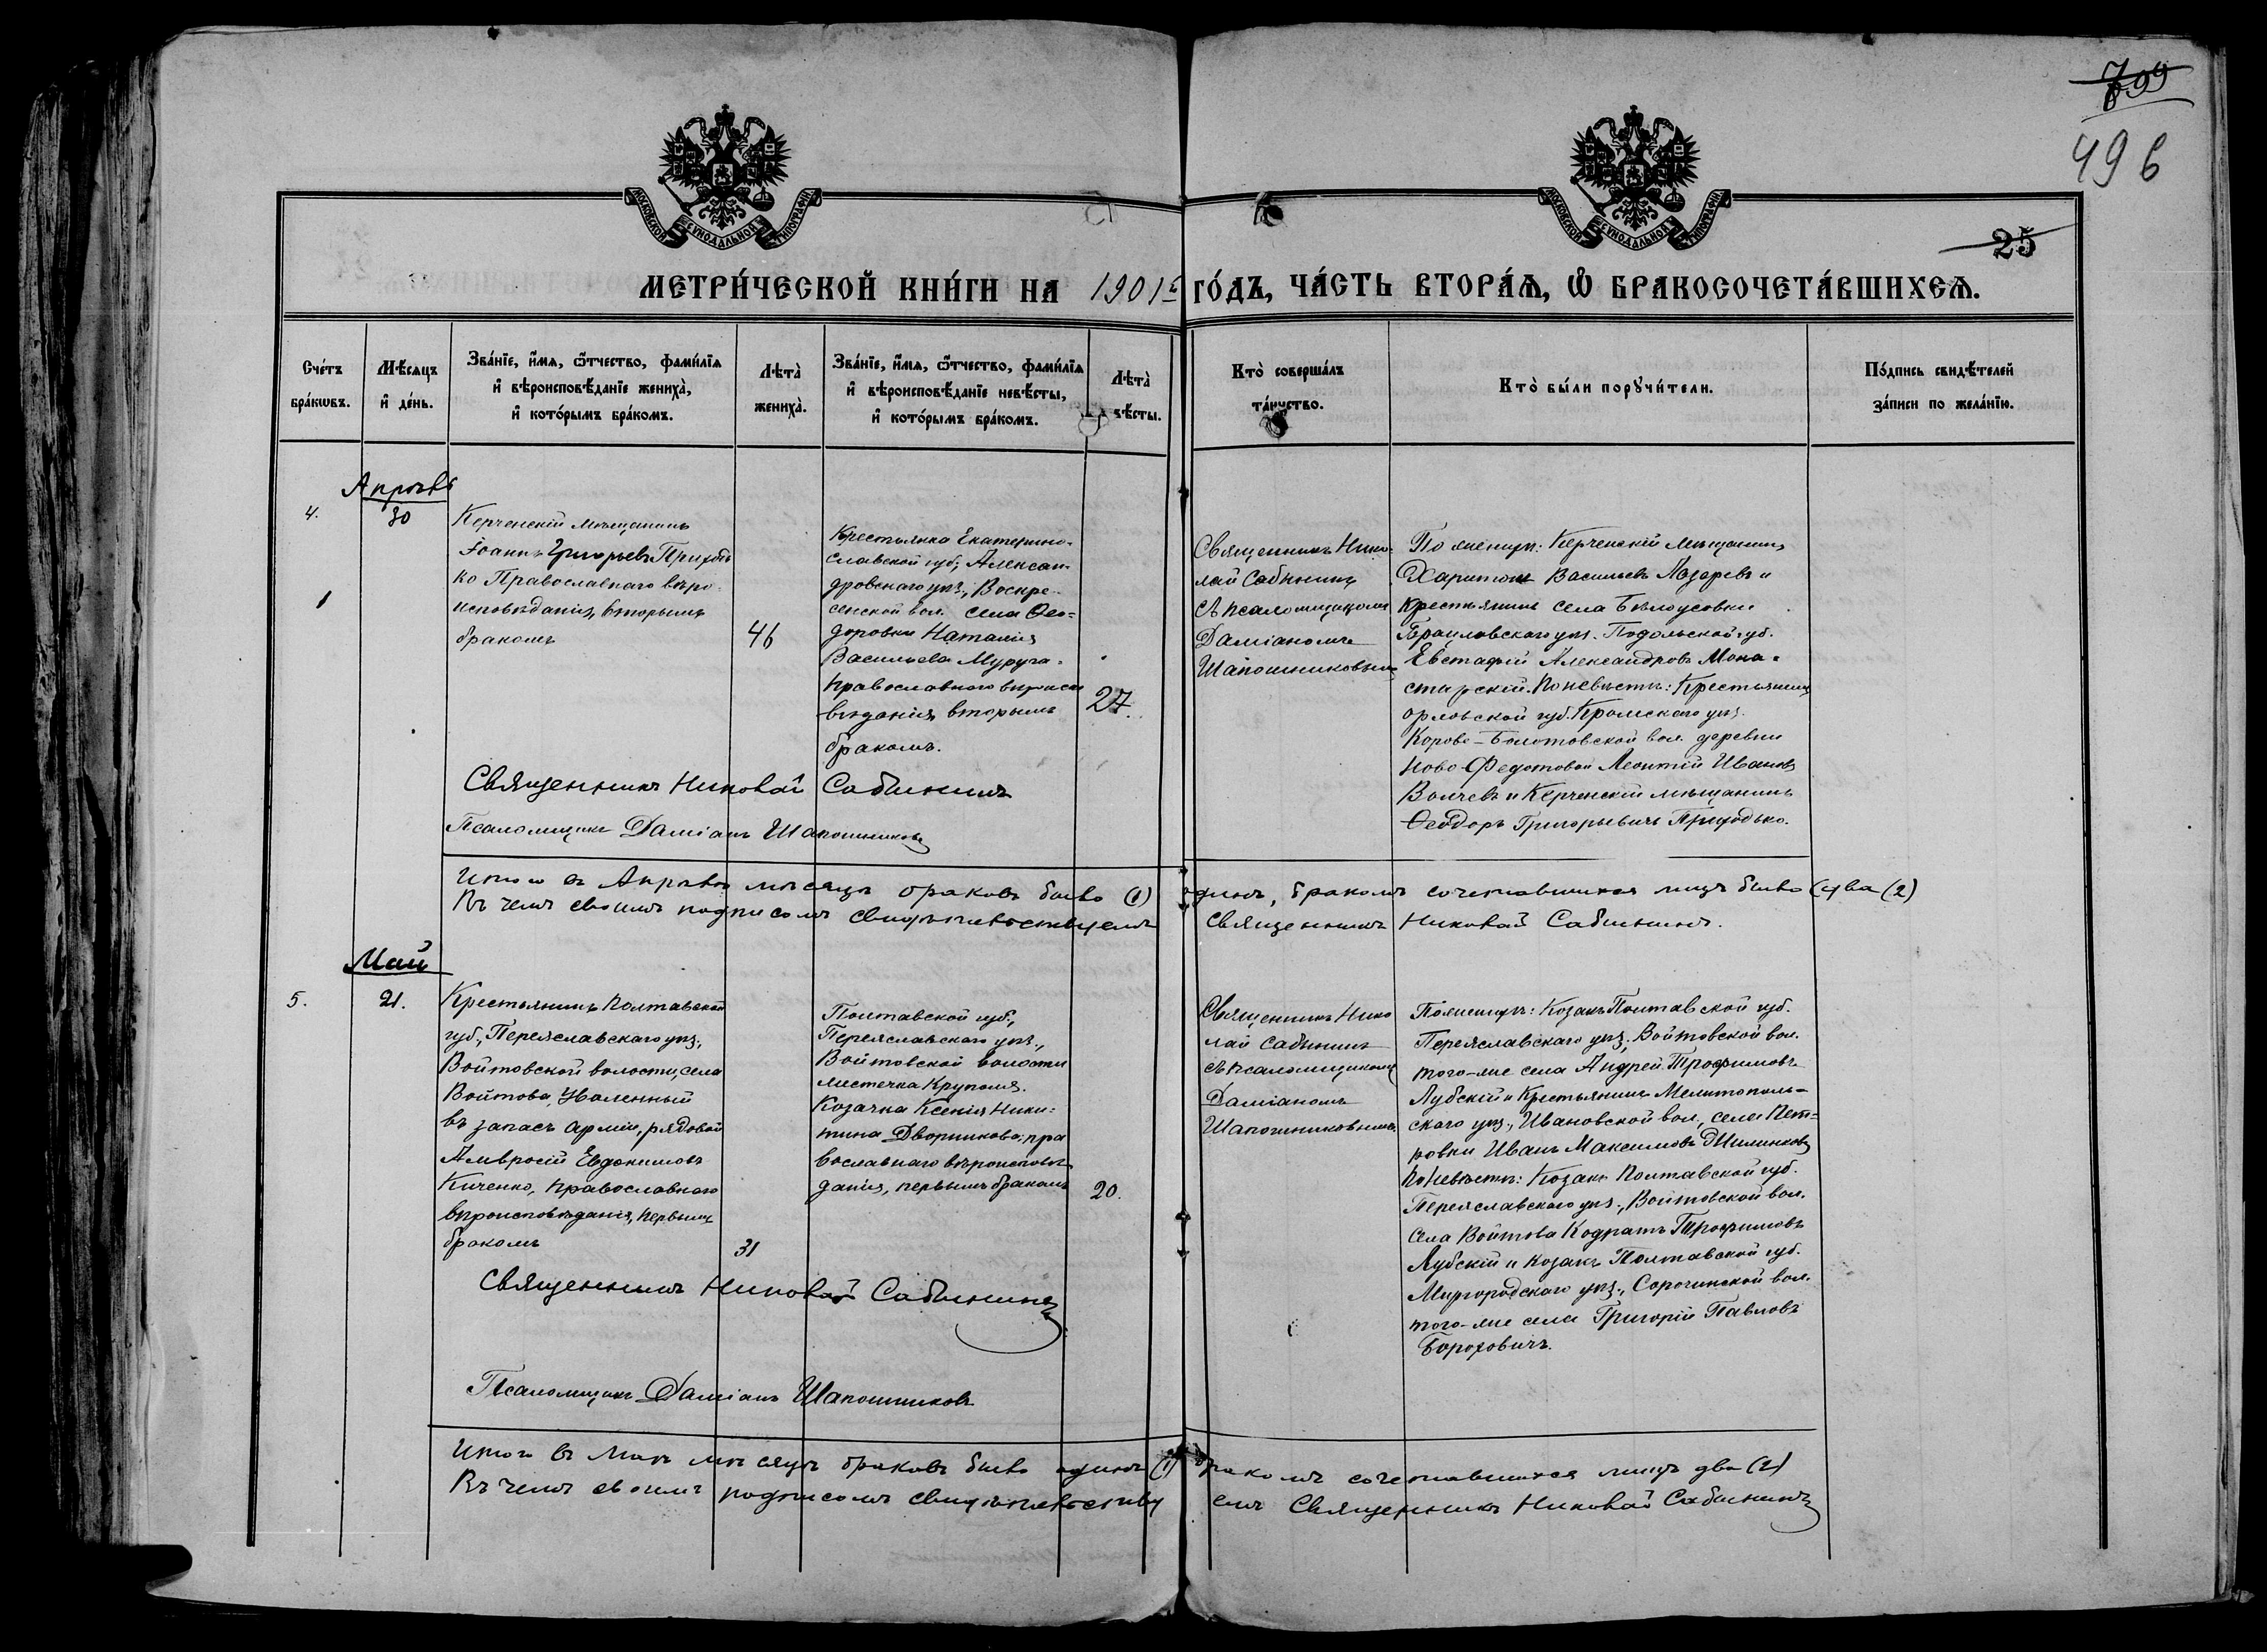 799
496
25
МОСКОВСКОЙ СѴНОДАЛЬНОЙ ТИПОГРАФІИ
МОСКОВСКОЙ СѴНОДАЛЬНОЙ ТИПОГРАФІИ
МЕТРИ́ЧЕСКОЙ КНИ́ГИ НА 1901й ГО́ДЪ, ЧА́СТЬ ВТОРА́Ѧ, Ѽ БРАКОСОЧЕТА́ВШИХСѦ.
Сче́тъ
бра́кѡвъ.
Мѣ́сяцъ
и҆ де́нь.
Зва́нїе, и҆́мѧ, ѻ҆́тчество, фами́лїѧ
и҆ вѣроисповѣ́данїе жениха̀,
и҆ кото́рымъ бра́комъ.
Лѣта̀
жениха̀.
Зва́нїе, и҆́мѧ, ѻ҆́тчество, фами́лїѧ
и҆ вѣроисповѣ́данїе невѣ́сты,
и҆ кото́рымъ бра́комъ.
Лѣта̀
вѣ́сты.
Кто̀ соверша́лъ
та́инство.
Кто̀ бы́ли порꙋчи́тели.
По́дпись свидѣ́телей
за́писи по жела́нїю.
Апрѣль
4.
30
1
Керченскій мѣщанинъ
Іоаннъ Григорьевъ Приходь
ко Православнаго вѣро-
исповѣданія, вторымъ
бракомъ
46
Крестьянка Екатерино-
славской губ., Алексан-
дровскаго уѣз., Воскре-
сенской вол. села Ѳео-
доровки Наталія
Васильева Муруга-
православнаго вѣроиспо
вѣданія, вторымъ
бракомъ.
27.
Священникъ Нико-
лай Сабининъ
съ псаломщикомъ
Даміаномъ
Шапошниковымъ
По женихѣ: Керченскій мѣщанинъ
Харитонъ Васильевъ Лазаревъ и
крестьянинъ села Бѣлоусовки
Брацловскаго уѣз. Подольской губ.
Евстафій Александровъ Мона-
стырскій. По невѣстѣ: Крестьянинъ
Орловской губ. Кромскаго уѣз.
Корово-Болотовской вол. деревни
Ново-Федотовой Леонтій Ивановъ
Волчевъ и Керченскій мѣщанинъ
Ѳеодоръ Григорьевичъ Приходько.
Священникъ Николай Сабининъ
Псаломщикъ Даміанъ Шапошниковъ
Итого въ Апрѣлѣ мѣсяцѣ браковъ было (1) одинъ, бракомъ сочетавшихся лицъ было два (2)
Въ чемъ своимъ подписомъ свидѣтельствуемъ Священникъ Николай Сабининъ.
Май
5.
21.
Крестьянинъ Полтавской
губ., Переяславскаго уѣз.,
Войтовской волости, села
Войтова, Уволенный
въ запасъ арміи, рядовой
Амвросій Евдокимовъ
Киченко, православнаго
вѣроисповѣданія, первымъ
бракомъ
31
Полтавской губ.,
Переяславскаго уѣз.,
Войтовской волости
местечка Круполя.
Козачка Ксенія Ники-
тина Дворникова, пра
вославнаго вѣроисповѣ-
данія, первымъ бракомъ
20.
Священникъ Нико
лай Сабининъ
съ псаломщикомъ
Даміаномъ
Шапошниковымъ.
По женихѣ: Козакъ Полтавской губ.
Переяславскаго уѣз. Войтовской вол.
того-же села Андрей Трофимовъ
Лубскій и Крестьянинъ Мелитополь-
скаго уѣз., Ивановской вол., села Пет-
ровки Иванъ Максимовъ
По невѣстѣ: Козакъ Полтавской губ.
Переяславскаго уѣз., Войтовской вол.
села Войтова Кодратъ Трофимовъ
Лубскій и козакъ Полтавской губ.
Миргородскаго уѣз., Сорочинской вол.
того-же села Григорій Павловъ
Борохович.
Священникъ Николай Сабининъ
Псаломщикъ Даміанъ Шапошниковъ
Итого въ Маѣ мѣсяцѣ браковъ было одинъ (1) бракомъ сочетавшихся лицъ два (2)
Въ чемъ своимъ подписомъ свидѣтельству емъ Священникъ Николай Сабининъ